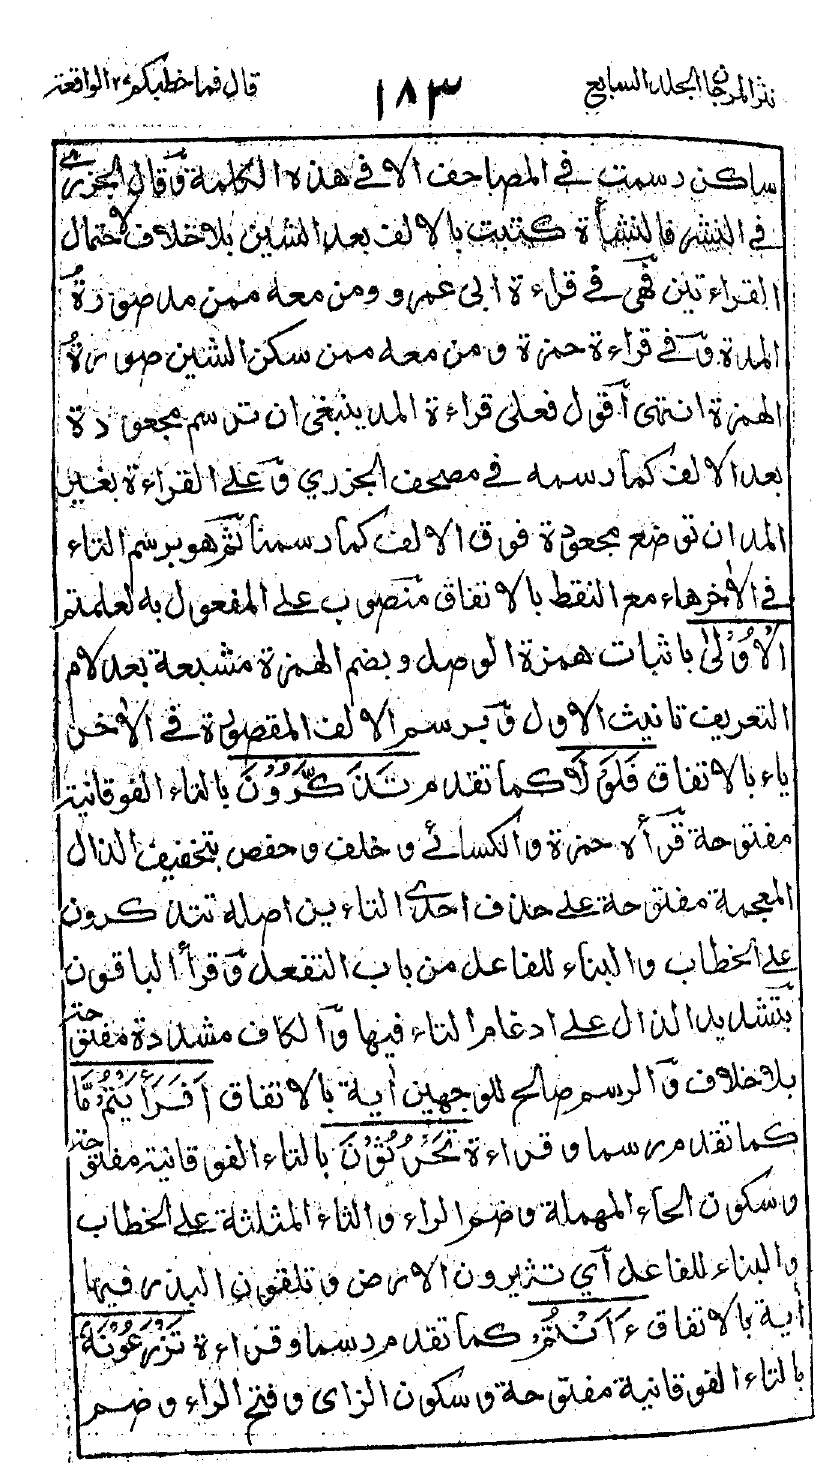 نثر المرجان المجلد السابع ١٨٣ قال فما خطبكم ٢٧ الواقعة
ساكن رسمت في المصاحف الا في هذه الكلمة وقال الجزري
في النشر فالنشأة كتبت بالالف بعد الشين بلاخلاف لاحتمال
القراءتين فهي في قراءة ابى عمرو ومن معه ممن مد صورة
المدة وفي قراءة حمزة ومن معه ممن سكن الشين صورة
الهمزة انتهى أقول فعلى قراءة المد ينبغى ان ترسم مجعودة
بعد الالف كما رسمه في مصحف الجزري وعلى القراءة بغير
المد ان توضع مجعودة فوق الالف كما رسمنا ثم هو برسم التاء
في الأخر هاء مع النقط بالاتفاق منصوب على المفعول به لعلمتم
الْأُوْلىٰ باثبات همزة الوصل وبضم الهمزة مشبعة بعد لام
التعريف تانيث الاول وبرسم الالف المقصورة في الأخر
ياء بالاتفاق فَلَوْلَا كما تقدم تَذَكَّرُوْنَ بالتاء الفوقانية
مفتوحة قرأه حمزة والكسائي وخلف وحفص بتخفيف الذال
المعجمة مفتوحة على حذف احدى التاءين اصله تتذكرون
على الخطاب والبناء للفاعل من باب التفعل وقرأ الباقون
بتشديد الذال على ادغام التاء فيها والكاف مشددة مفتوحة
بلاخلاف والرسم صالح للوجهين أية بالاتفاق اَفَرَأَيْتُمْ مَّا
كما تقدم رسما وقراءة تَحْرُثُوْنَ بالتاء الفوقانية مفتوحة
وسكون الحاء المهملة وضم الراء والثاء المثلثة على الخطاب
والبناء للفاعل أي تثيرون الارض وتلقون البذر فيها
أية بالاتفاق ءَاَنْتُمْ كما تقدم رسما وقراءة تَزْرَعُوْنَهٗ
بالتاء الفوقانية مفتوحة وسكون الزاى وفتح الراء وضم